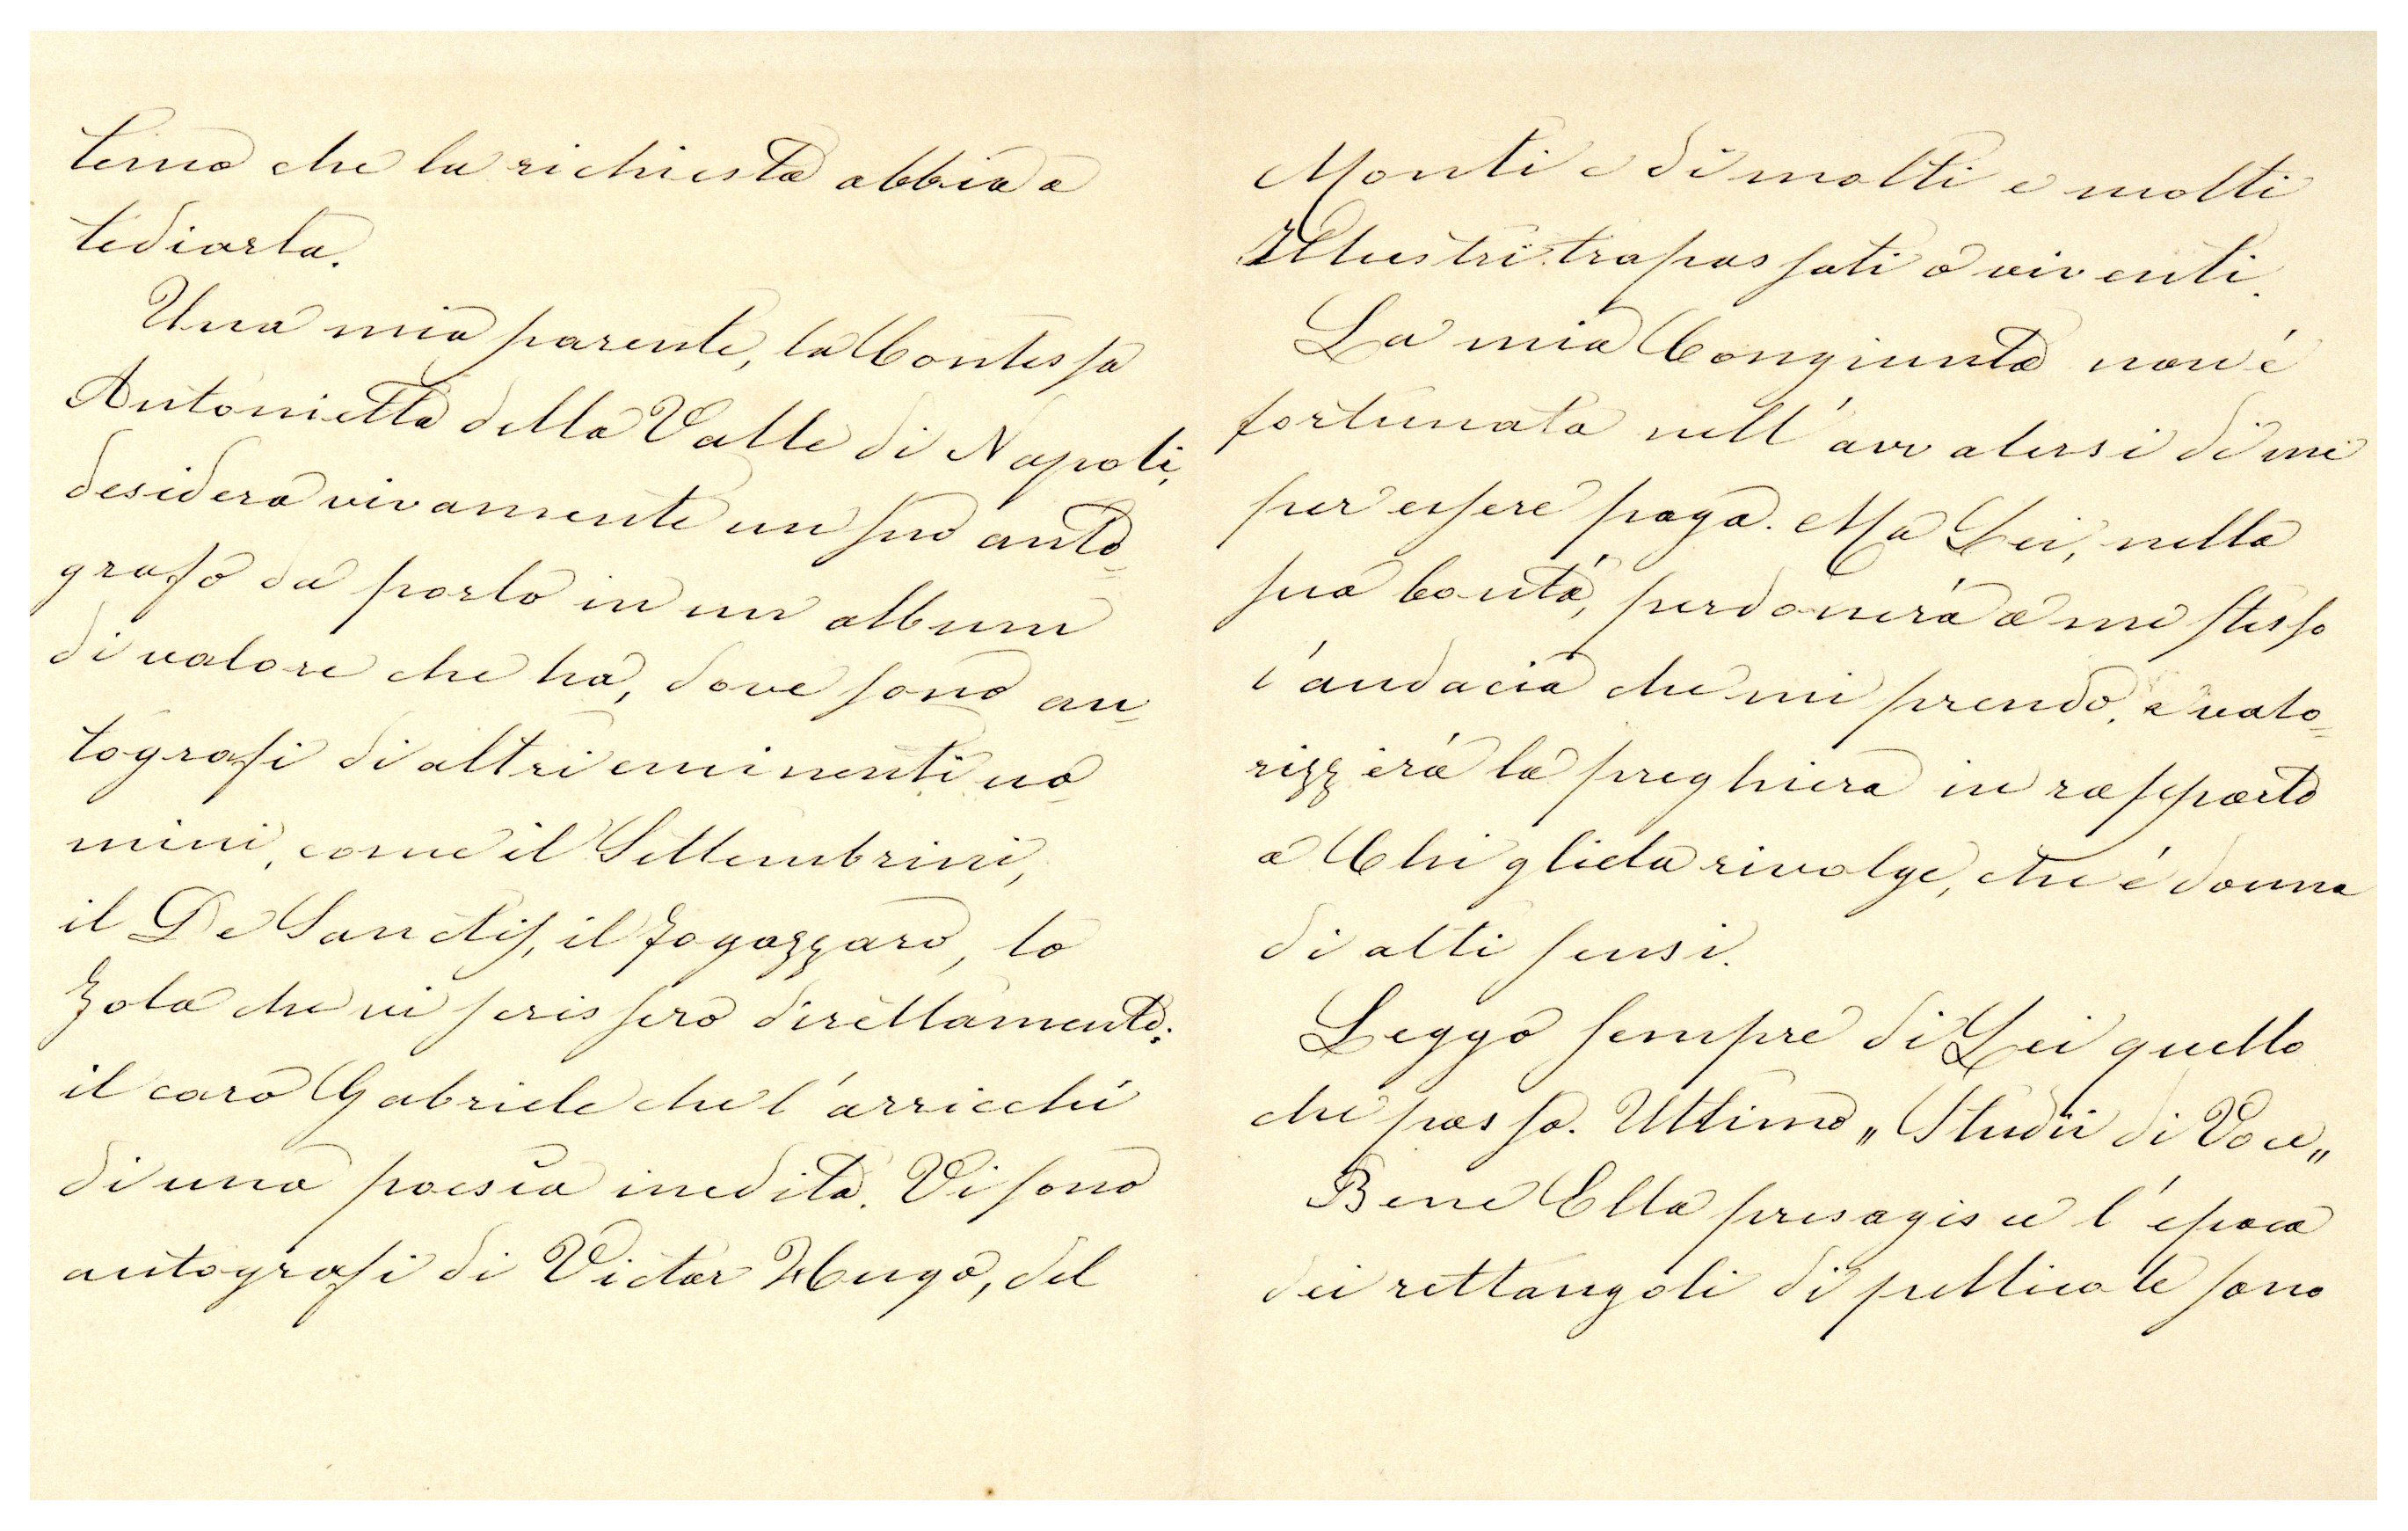 temo che la richiesta abbia a
tediarla.
Una mia parente, la Contessa
Antonietta della Valle di Napoli,
desidera vivamente un suo auto=
grafo da porlo in un album
di valore che ha, dove sono au=
tografi di altri eminenti uo=
mini, come il Settembrini,
il De Sanctis, il Fogazzaro, lo
Zola che vi scrissero direttamente;
il caro Gabriele che l'arricchì
di una poesia inedita. Vi sono
autografi di Victor Hugo, del
Monti e di molti e molti
Illustri trapassati o viventi.
La mia Congiunta non è
fortunata nell'avvalersi di me
per essere paga. Ma Lei, nella
sua bontà, perdonerà a me stesso
l'audacia che mi prendo, e valo=
rizzerà la preghiera in rapporto
a Chi gliela rivolge, che è donna
di alti sensi.
Leggo sempre di Lei quello
che posso. Ultimo „Studii di Voce„
Bene Ella presagisce l'epoca
dei rettangoli di pellicole sono